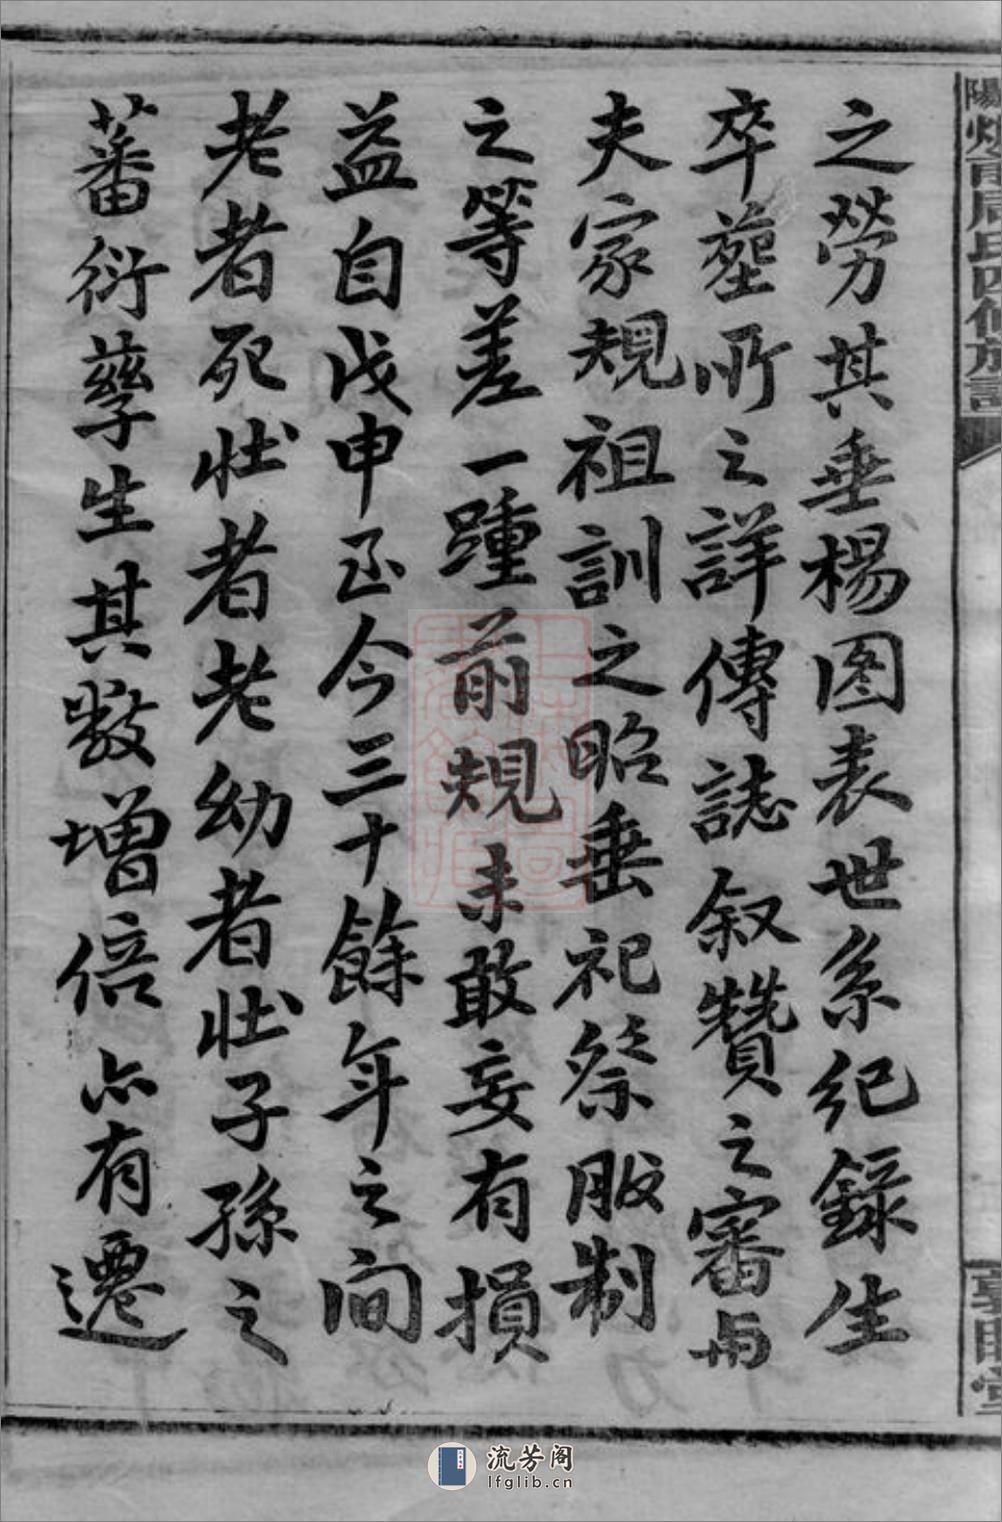 之勞其垂楊图表世系纪錄生
卒塟所之詳傳誌叙贊之審與
夫家規祖訓之昭垂祀祭服制
之等差一踵前規未敢妄有損
益自戊申至今三十餘年之间
老者死壯者老幼者壯子孫之
蕃衍孳生其数增倍亦有遷
周氏四修族譜
流芳阁
lfglib.cn